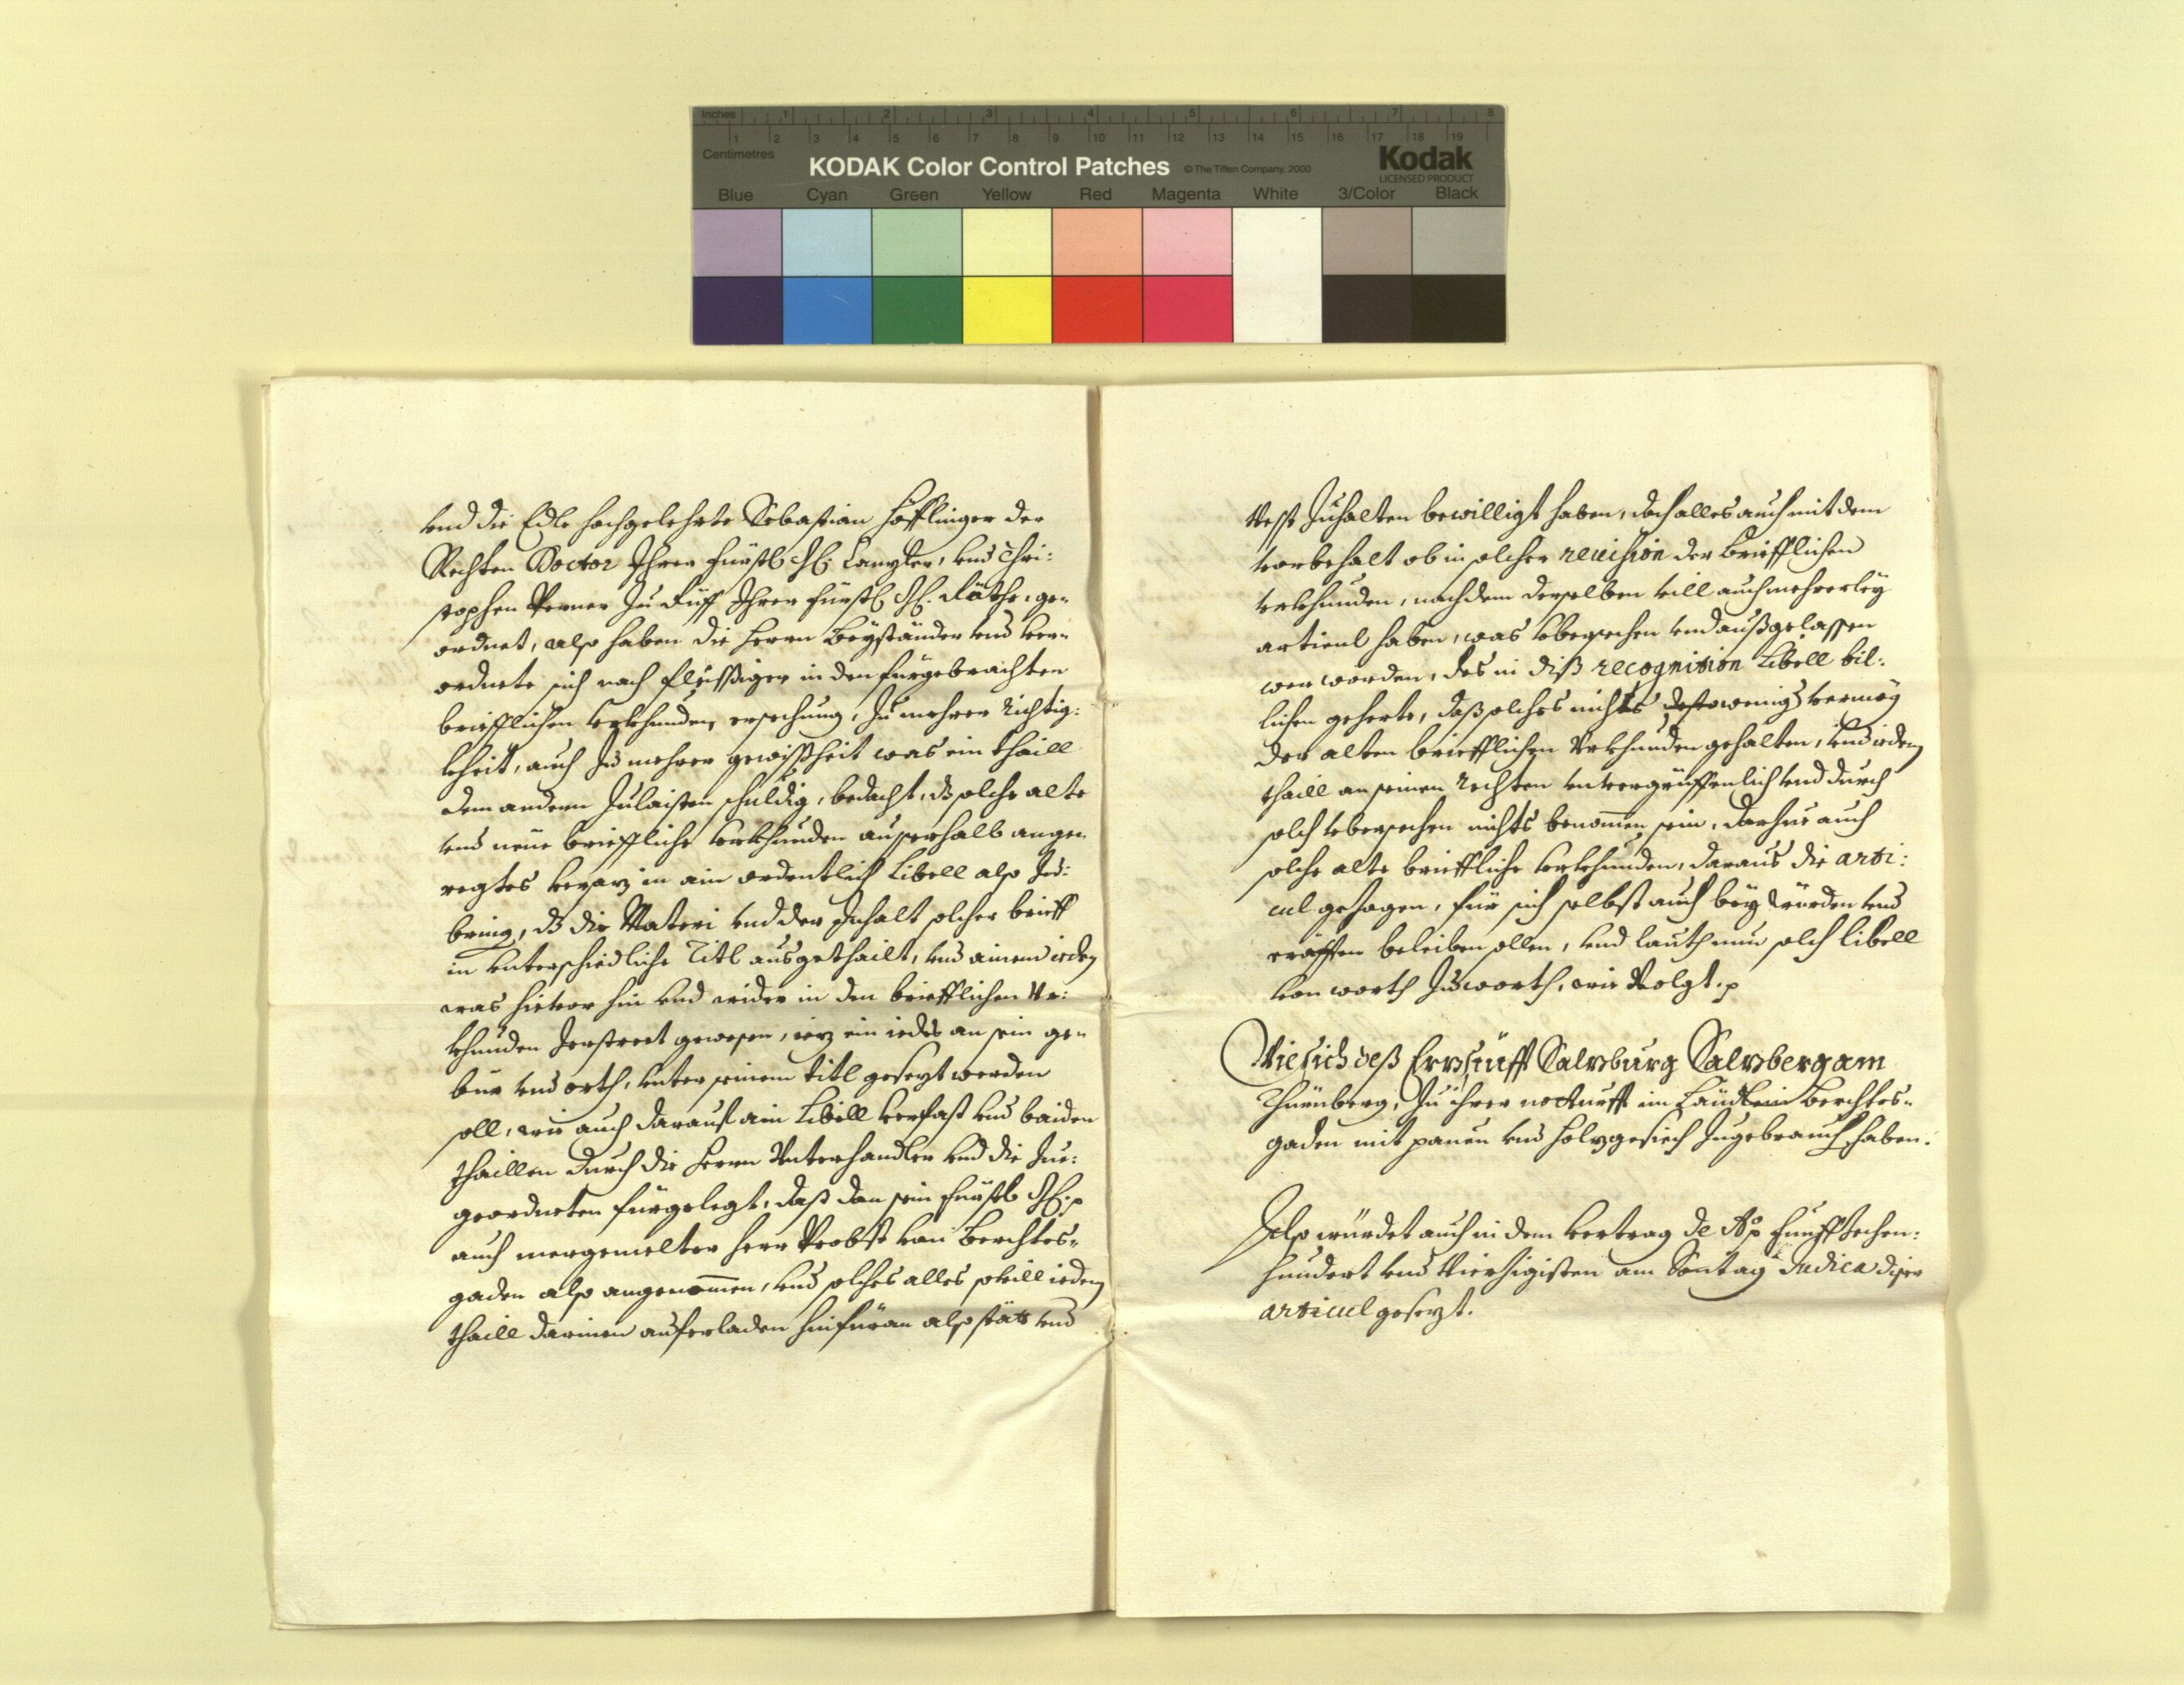 Inches 1 2 3 4 5 6 7 8
1 2 3 4 5 6 7 8 9 10 11 12 13 14 15 16 17 18 19
Centimetres
KODAK Color Control Patches © The Tiffen Company, 2000 Kodak
LICENSED PRODUCT
Blue Cyan Green Yellow Red Magenta White 3/Color Black
vnd die Edle hochgelehrte Sebastian Höfflinger der
Rechten Doctor Ihrer Fürstl. Canzler, vnd Chri:
stophen Perner zu Ihrer Fürstl. Räthe, ge-
ordnet, also haben die Herrn Beyständer vnd ver-
ordnete sich nach fleissiger in den fürgebrachten
briefflichen vrkhunden, ersechung, zu mehrer Richtig:
kheit, auch zu mehrer gewißheit was ein thaill
dem andern zulaisten schuldig, bedacht, dz solche alte
vnd neue brieffliche vrkhunden ausserhalb ange-
regtes in ain ordentlich Libell also zu:
bring, dz die Materi vnd der Inhalt solcher brieff
in vnterschiedliche Titl ausgethailt, vnd ainem ieden
was hievor hin vnd wider in den briefflichen Vr:
khunden zerstreet gewesen, iezt ein iedes an sein ge-
bür vnd orth, vnter seinem titl gesezt werden
soll, wie auch darauf ain Libell verfast vnd baiden
thaillen durch die Herrn Vnterhandler vnd die zue:
geordneten fürgelegt, daß dan sein Fürstl.
auch mergemelter Herr Probst von Berchtes-
gaden also angenommen, vnd solches alles souill ieden
thaill darinen auferladen hinfüran also stätt vnd
Vesst zuhalten bewilligt haben, doch alles auch mit dem
vorbehalt ob in solcher reuision der brieflichen
vrkhunden, nachdem derselben vill auch mehrerley
articul haben, was vbersechen vnd außgelassen
wer worden, des in diß recognition Libell bil:
lichen geherte, daß solches nichts destoweniger vermög
der alten briefflichen Vrkhunden gehalten, vnd ieden
thaill an seinen Rechten vnuergriffenlich vnd durch
solch vbersechen nichts benommen sein, auch
solche alte brieffliche vrkhunden, daraus die arti:
cul gezogen, für sich selbst auch bey würden vnd
crefften beleiben sollen, vnd lauth nun solch libell
von worth zu worth, wie Volgt.
Wie sich deß Erzstüfft Salzburg Salzberg am
Thürnberg, zu ihrer notturfft im Ländlein Berchtes-
gaden mit pauen vnd holzgesiech zugebrauch haben.
Also würdet auch in dem vertrag de Ao. Funffzechen:
hundert vnd Vierzigisten am Sontag Judica diser
articul gesezt.